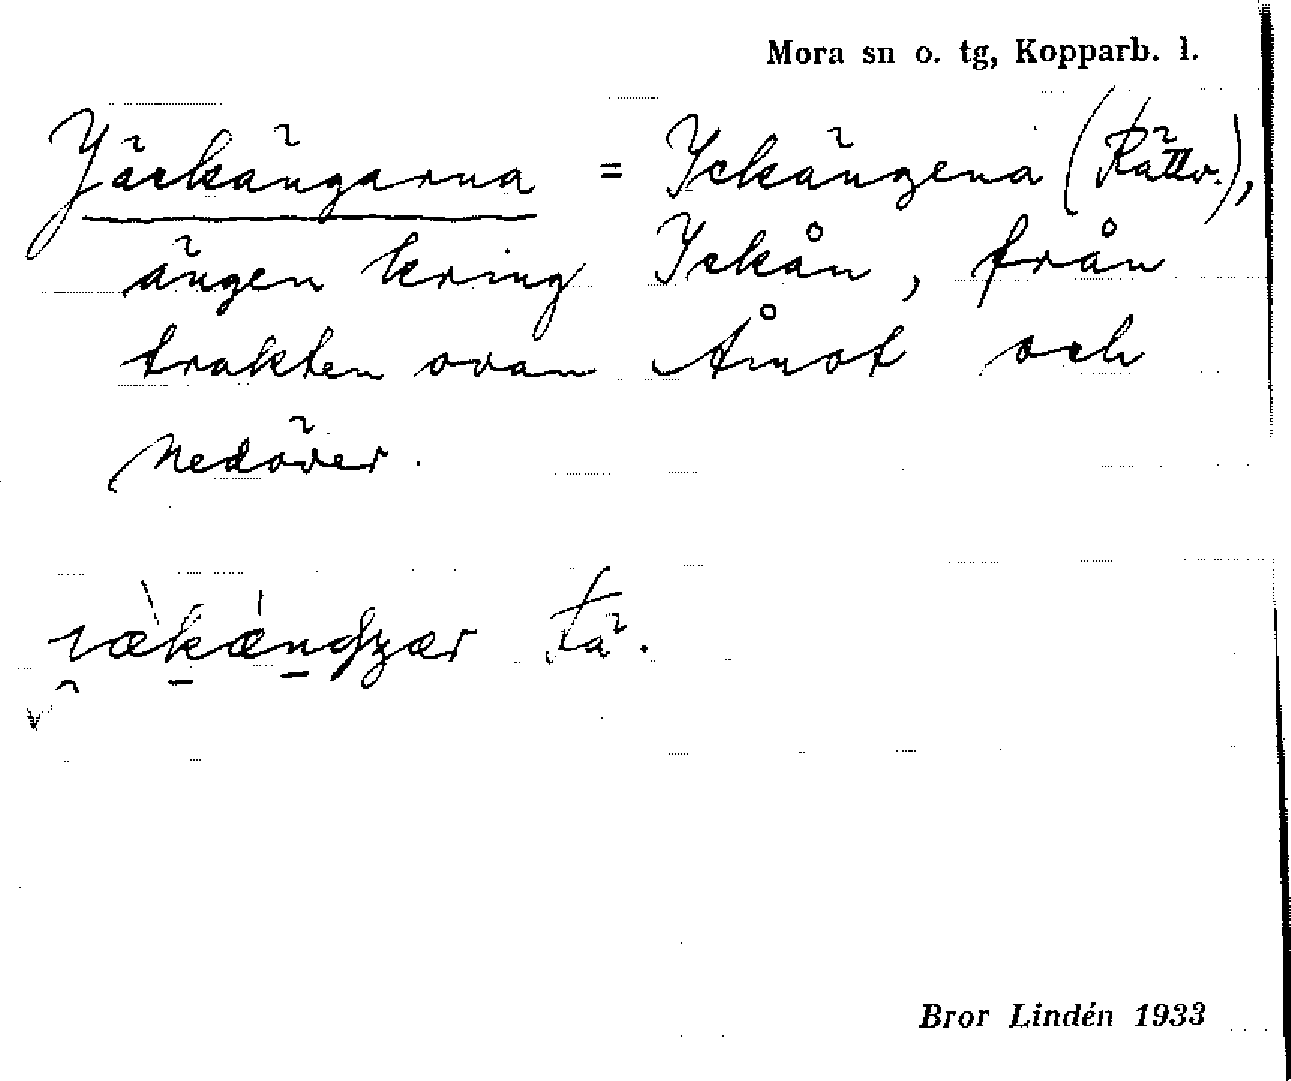 Mora sn o. tg, Kopparb. l.
Jäckängarna = Ickängena (Rättv.),
ängen kring Ickån, från
trakten ovan Åmot och
nedöver.
tä.
Bror Lindén 1933